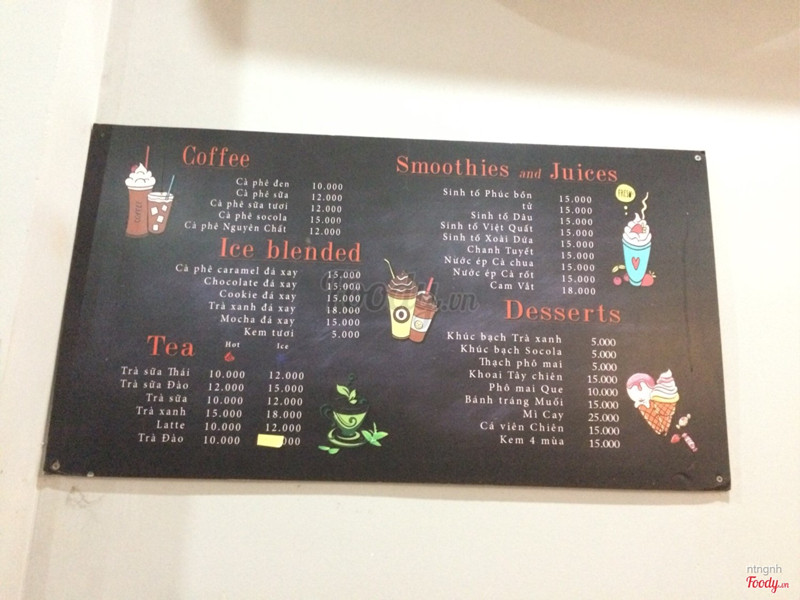 Coffee
Cà phê đen 10.000
Cà phê sữa 12.000
Cà phê sữa tươi 12.000
Cà phê socola 15.000
Cà phê Nguyên Chất 12.000
Ice blended
Cà phê caramel đá xay 15.000
Chocolate đá xay 15.000
Cookie đá xay 15.000
Trà xanh đá xay 18.000
Mocha đá xay 15.000
Kem tươi 5.000
Tea
Hot Ice
Trà sữa Thái 10.000 12.000
Trà sữa Đào 12.000 15.000
Trà sữa 10.000 12.000
Trà xanh 15.000 18.000
Latte 10.000 12.000
Trà Đào 10.000 000
Smoothies and Juices
Sinh tố Phúc bồn
tử 15.000
Sinh tố Dâu 15.000
Sinh tố Việt Quất 15.000
Sinh tố Xoài Dứa 15.000
Chanh Tuyết 15.000
Nước ép Cà chua 15.000
Nước ép Cà rốt 15.000
Cam Vắt 18.000
Desserts
Khúc bạch Trà xanh 5.000
Khúc bạch Socola 5.000
Thạch phô mai 5.000
Khoai Tây chiên 15.000
Phô mai Que 10.000
Bánh tráng Muối 15.000
Mì Cay 25.000
Cá viên Chiên 15.000
Kem 4 mùa 15.000
COFFEE
Foody.vn
ntngnh
Foody.vn